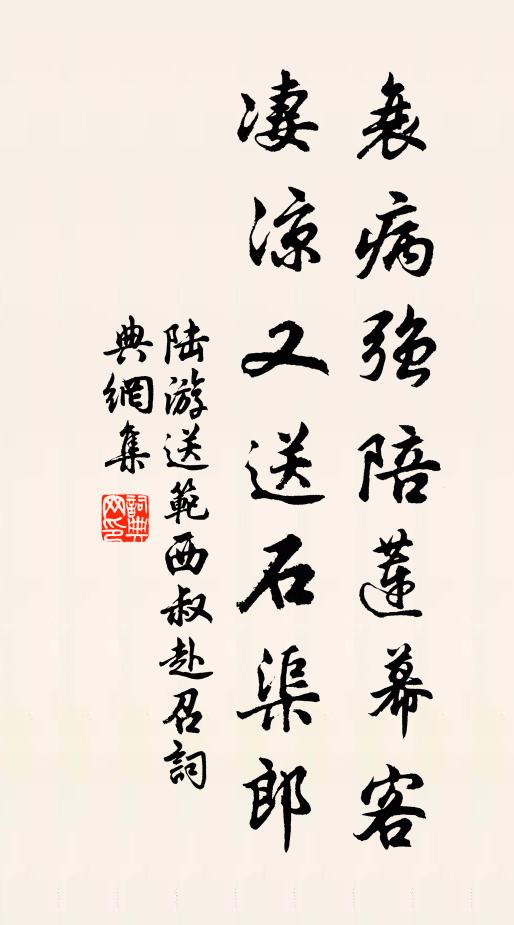 衰病強陪蓮幕客
凄涼又送石渠郎
陸游送範西叔赴召詞
典網集
詞典網印